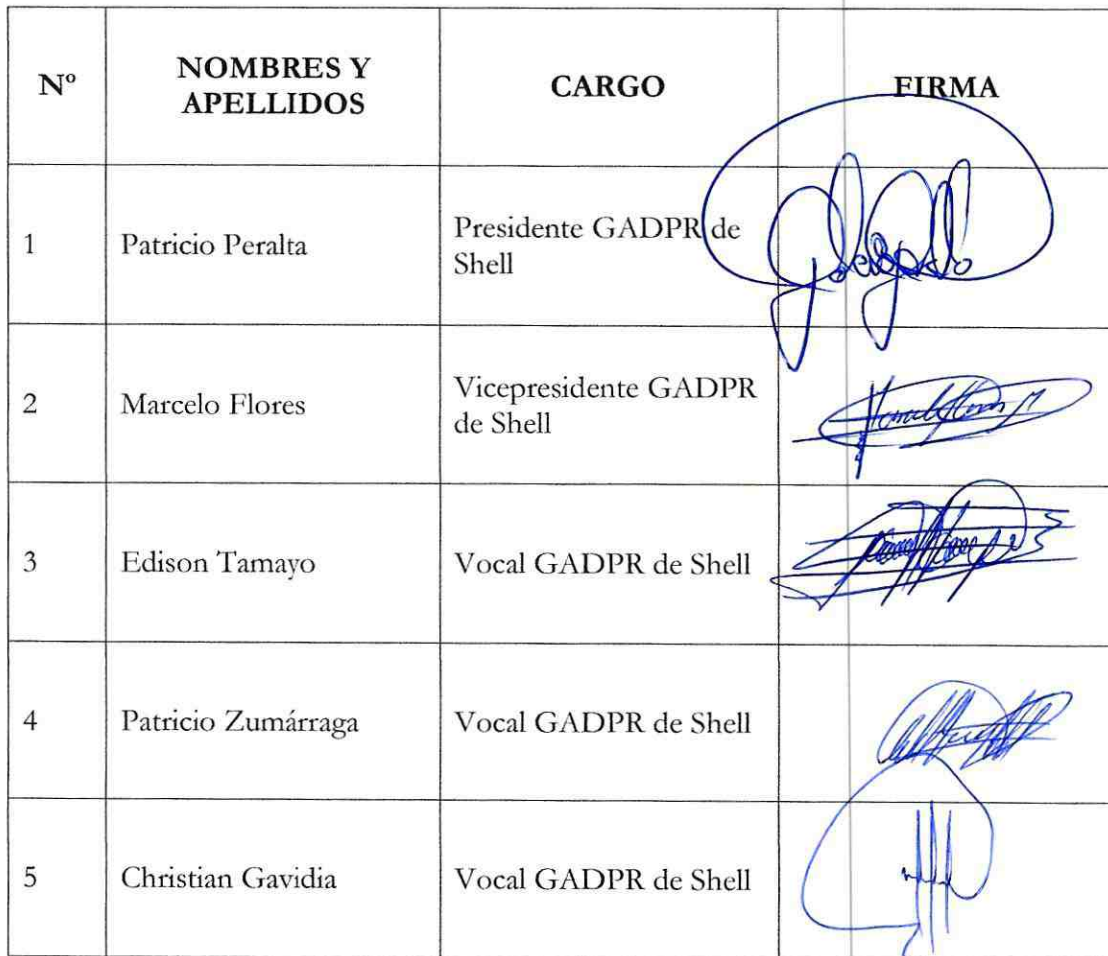 Nº
NOMBRES Y
APELLIDOS
CARGO
FIRMA
1
Patricio Peralta
Presidente GADPR de
Shell
2
Marcelo Flores
Vicepresidente GADPR
de Shell
3
Edison Tamayo
Vocal GADPR de Shell
4
Patricio Zumárraga
Vocal GADPR de Shell
5
Christian Gavidia
Vocal GADPR de Shell